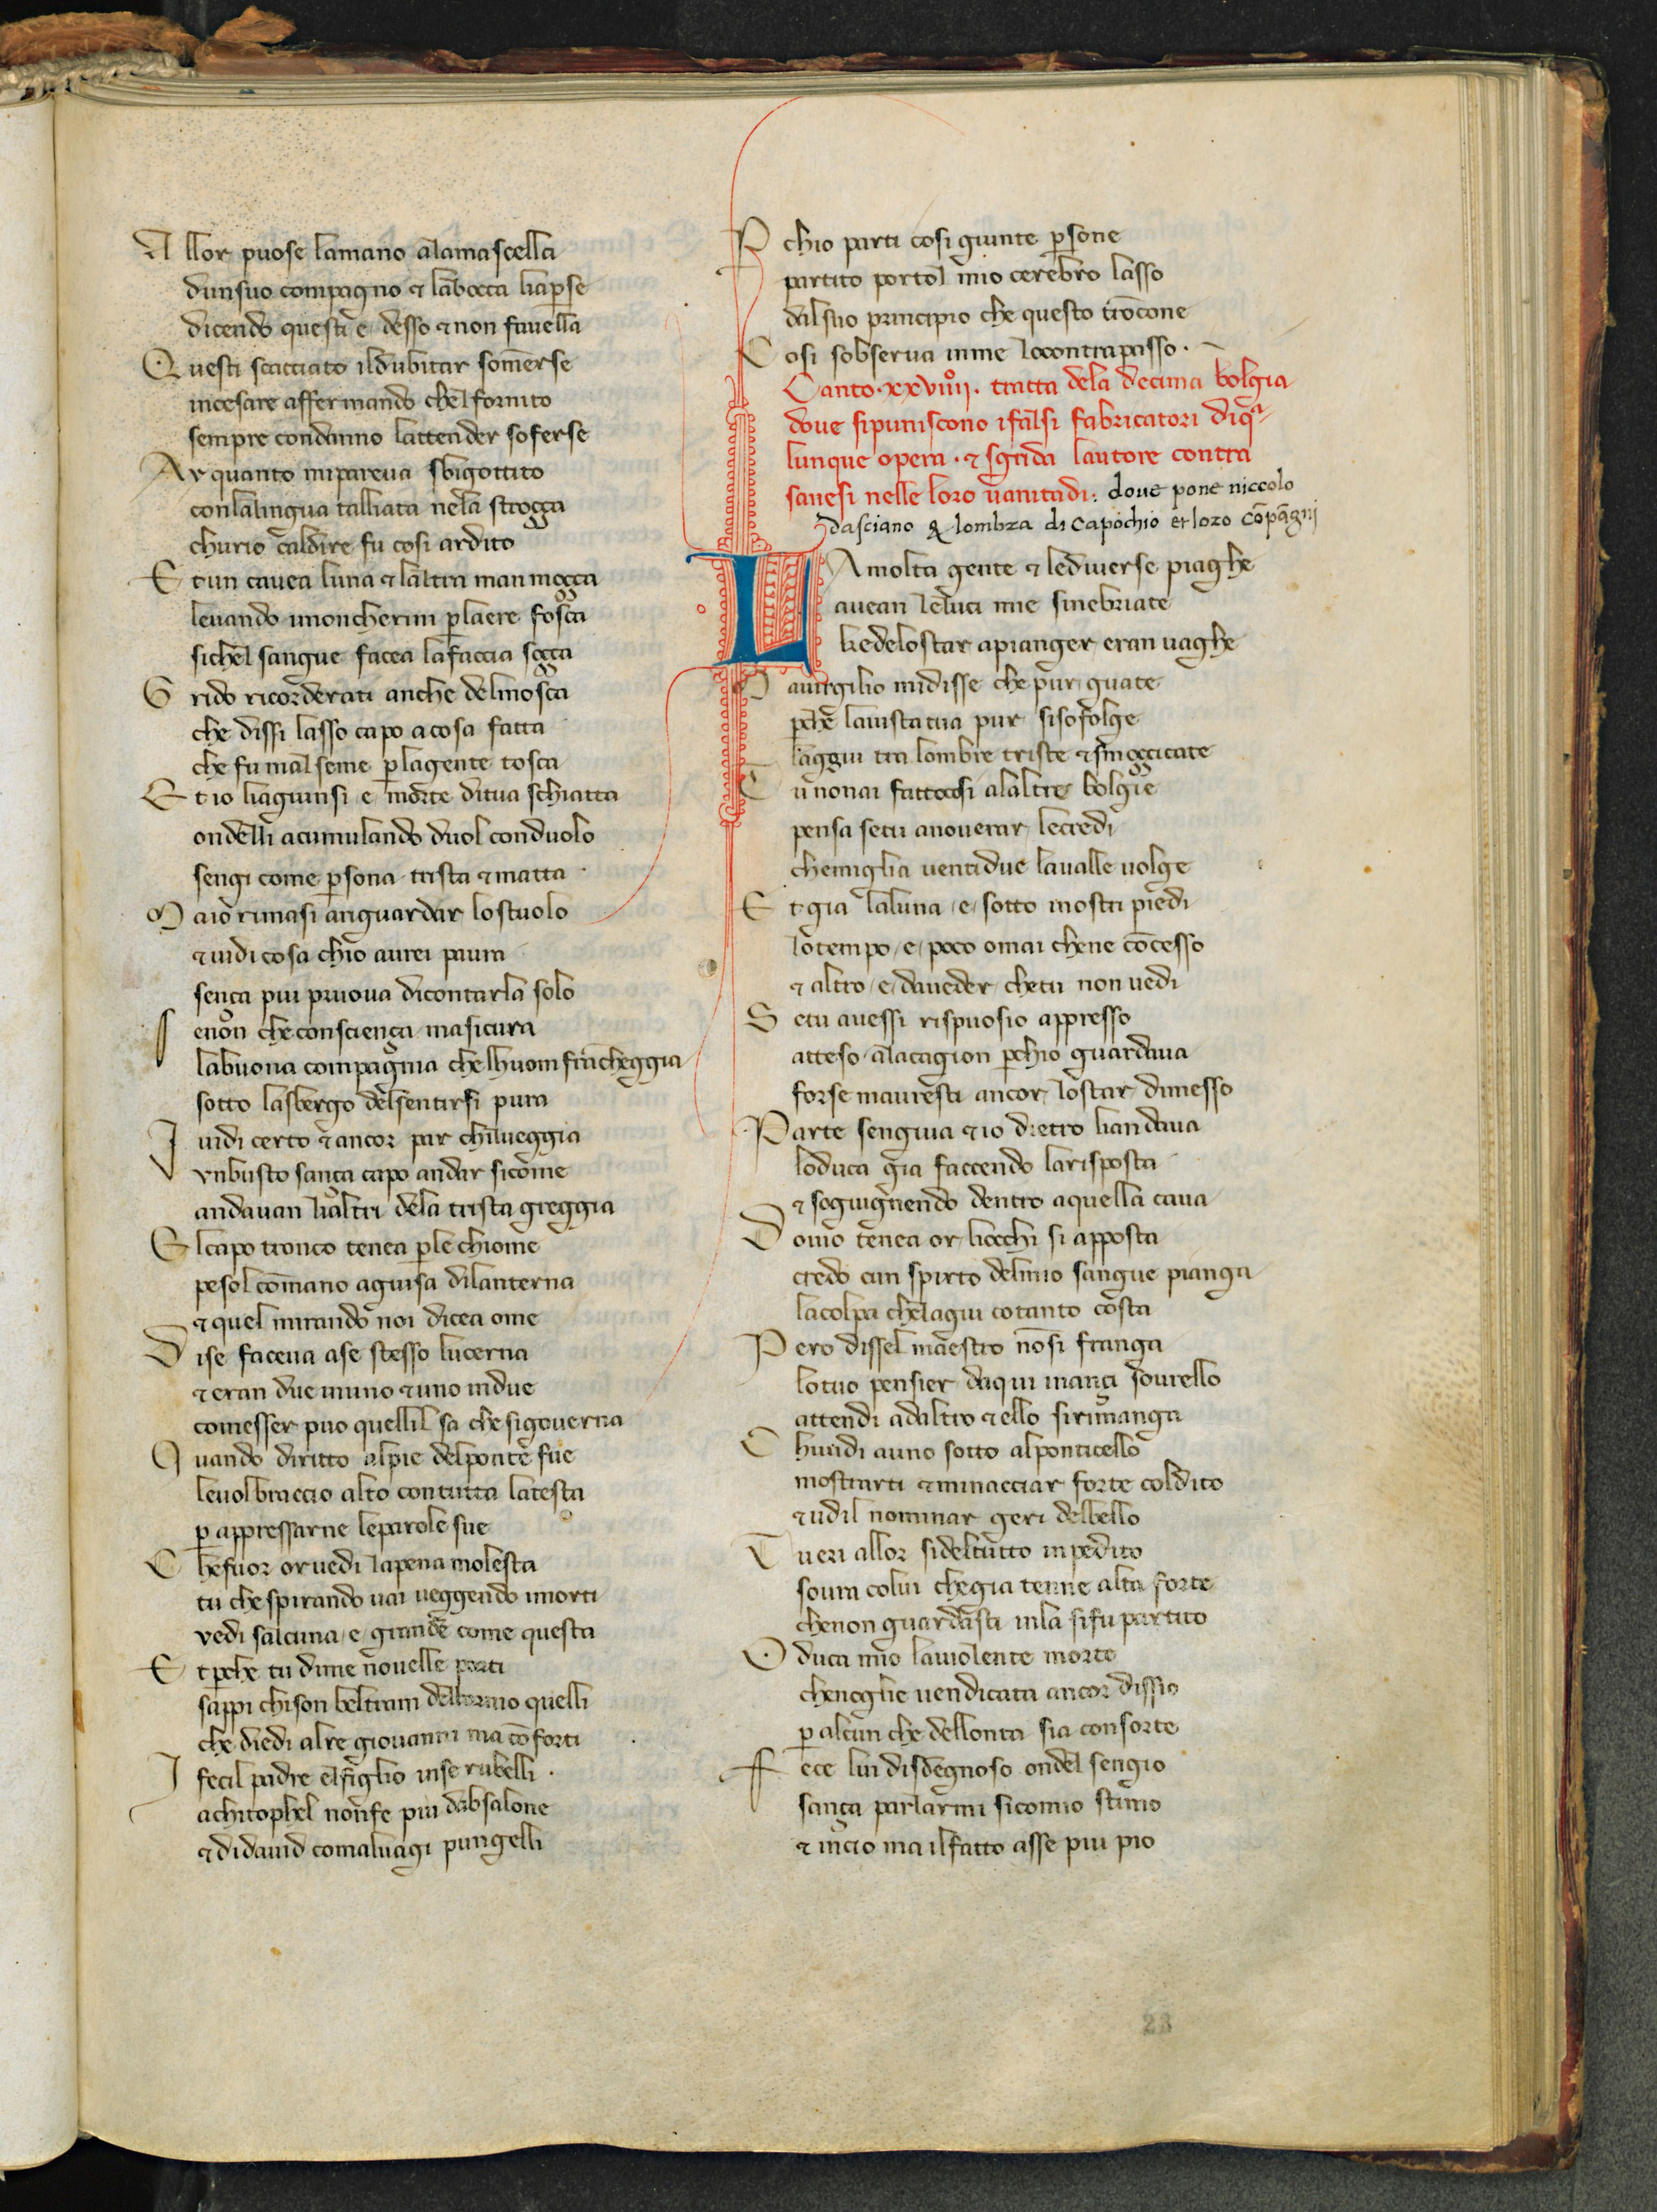 Allor puose lamano alamascella
dunsuo compagno ⁊ labocca liaꝑse
dicendo questi e desso ⁊ non fauella
Questi scacciato ildubitar som̄erse
incesare affermando chel fornito
sempre condanno lattender soferse
Ar quanto mipareua sbigottito
conlalingua talliata nela strogça
churio caldire fu cosi ardito
Et un cauea luna ⁊ laltra man mogça
leuando imoncherini ꝑ laere fosca
sichel sangue facea lafaccia sogça
Grido ricorderati anche delmosca
che dissi lasso capo acosa fatta
che fu mal seme ꝑ lagente tosca
Et io liagiunsi e morte ditua schiatta
ondelli acumulando duol conduolo
sengi come ꝑsona trista ⁊ matta
Maio rimasi anguardar lostuolo
⁊ uidi cosa chio aurei paura
sença piu pruoua dicontarla solo
Senon che consciença masicura
labuona compagnia che lhuom frācheggia
sotto lasbergo delsentirsi pura
I uidi certo ⁊ ancor par chilueggia
vnbusto sança capo andar sicome
andauan lialtri dela trista greggia
El capo tronco tenea ꝑ le chiome
pesol com̄ano aguisa dilanterna
⁊ quel mirando noi dicea ome
Dise faceua ase stesso lucerna
⁊ eran due inuno ⁊ uno indue
comesser puo quellil sa che sigouerna
Quando diritto alpie delponte fue
leuolbraccio alto contutta latesta
ꝑ appressarne leparole sue
Chefuor or uedi lapena molesta
tu che spirando uai ueggendo imorti
vedi salcuna e grande come questa
Et ꝑche tu dime nouelle porti
sappi chison beltram dalbornio quelli
che diedi alre giouanni ma cōforti
I fecil padre elfiglio inse rubelli
achitophel nonfe piu dabsalone
⁊ didauid comaluagi pungelli
Pchio parti cosi giunte ꝑsone
partito portol mio cerebro lasso
dalsuo principio che questo trōcone
Cosi sobserua inme locontrapasso.
Canto. xxviiij. tratta dela decima bolgia
doue sipuniscono ifalsi fabricatori diqᵃ
lunque opera. ⁊ sgrida lautore contra
sanesi nelle loro uanitadi: doue pone niccolo
dasciano & lombra di Capochio et loro cōpagnj
LAmolta gente ⁊ lediuerse piaghe
auean leluci mie sinebriate
kedelostar apianger eran uaghe
Mauirgilio midisse che pur guate
ꝑche lauista tua pur sisofolge
laggiu tra lombre triste ⁊ smogçicate
Tu nonai fattocosi alaltre bolgie
pensa setu anouerar lecredi
chemiglia uentidue laualle uolge
Et gia laluna e sotto inostri piedi
lotempo e poco omai chene cōcesso
⁊ altro e daueder chetu non uedi
Setu auessi rispuosio appresso
atteso alacagion ꝑchio guardaua
forse mauresti ancor lostar dimesso
Parte sengiua ⁊ io dietro liandaua
loduca gia faccendo larisposta
⁊ sogiugnendo dentro aquella caua
Douio tenea or liocchi si apposta
credo cun spirto delmio sangue pianga
lacolpa chelagiu cotanto costa
Pero dissel maestro nōsi franga
lotuo pensier daqui inançi sourello
attendi adaltro ⁊ ello sirimanga
Chiuidi auno sotto alponticello
mostrarti ⁊ minacciar forte coldito
⁊ udil nominar geri delbello
Tueri allor sideltutto inpedito
soura colui chegia tenne alta forte
chenon guardasti inla sifu partito
O duca mio lauiolente morte
chenoglie uendicata ancor dissio
ꝑ alcun che dellonta sia consorte
Fece lui disdegnoso ondel sengio
sança parlarmi sicomio stimo
⁊ inçio ma ilfatto asse piu pio
23